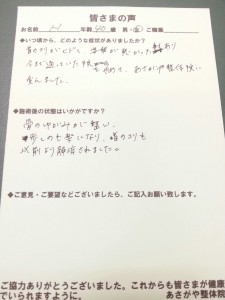 皆さまの声
お名前 H 年齢 40 男・女 ご職業
◆いつ頃から、どのような症状がありましたか?
首のコリがひどく
今まで通っていた
あさがや整体院に
来ました。
◆施術後の状態はいかがですか?
骨のゆがみが整い、
姿勢も
肩のコリも
以前より解消されました。
◆ご意見・ご要望などございましたら、ご記入お願い致します。
ご協力ありがとうございました。これからも皆さまが健康
でいられますように。 あさがや整体院